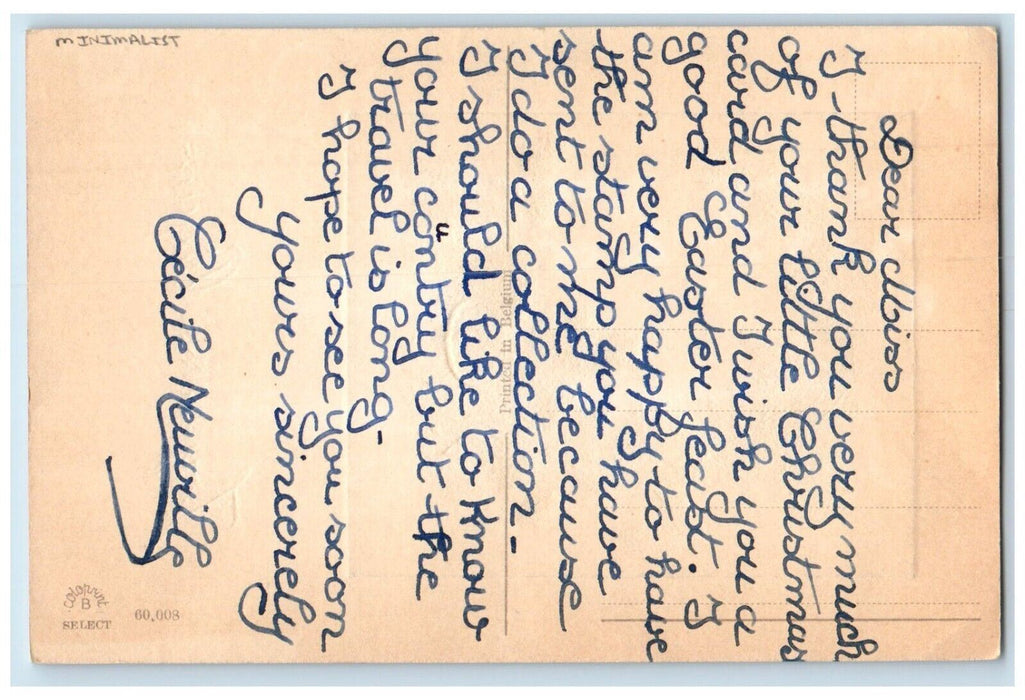 MINIMALIST
Dear Miss
I thank you very much
of your little Christmas
card and I wish you a
good Easter feast. I
am very happy to have
the stamp you have
sent to me because
I do a collection.
I should like to know
your coüntry but the
travel is long.
I hope to see you soon
yours sincerely
Cécile Neuville
Printed in Belgium
coloprint
B
SELECT
60.008